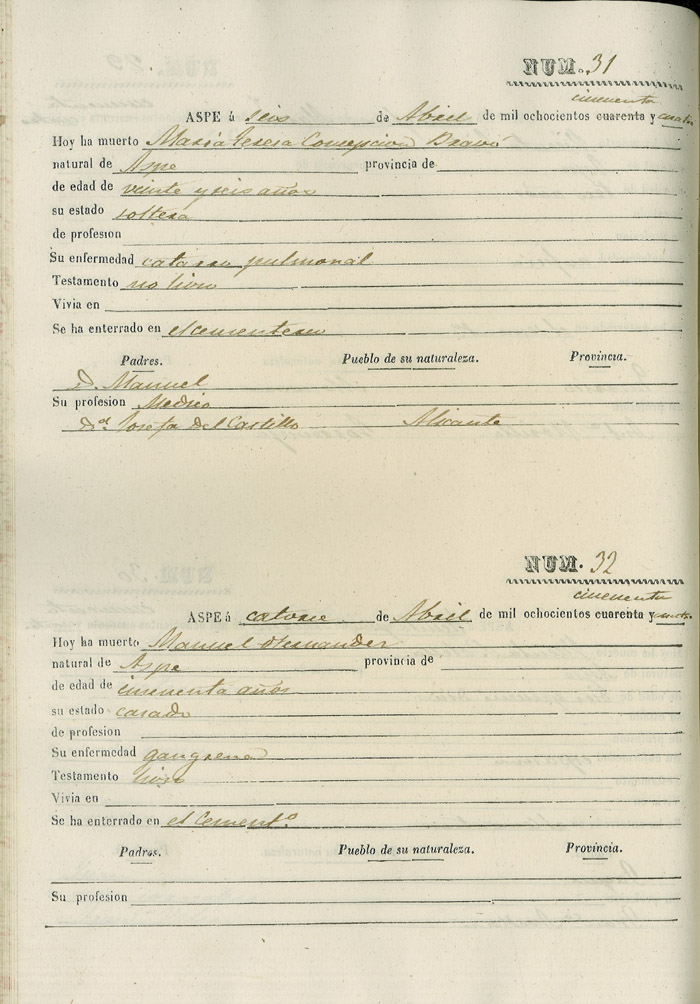 NUM. 31
cincuenta
ASPE á seis de Abril de mil ochocientos cuarenta y cuatro
Hoy ha muerto Maria Teresa Concepcion Bravo
natural de Aspe provincia de
de edad de veinte y seis años
su estado soltera
de profesion
Su enfermedad catarro pulmonal
Testamento no hizo
Vivia en
Se ha enterrado en el cementerio
Padres. Pueblo de su naturaleza. Provincia.
D. Manuel
Su profesion Medico
Dª Josefa del Castillo Alicante
NUM. 32
cincuenta
ASPE á catorce de Abril de mil ochocientos cuarenta y cuatro
Hoy ha muerto Manuel Hernandez
natural de Aspe provincia de
de edad de cincuenta años
su estado casado
de profesion
Su enfermedad gangrena
Testamento hizo
Vivia en
Se ha enterrado en el Cementº
Padres. Pueblo de su naturaleza. Provincia.
Su profesion